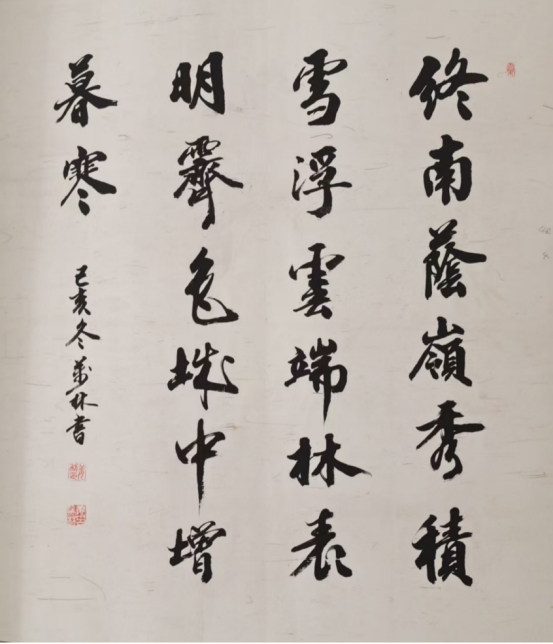 終南蔭嶺秀積
雪浮雲端林表
明霽色城中增
暮寒
己亥冬萬林書